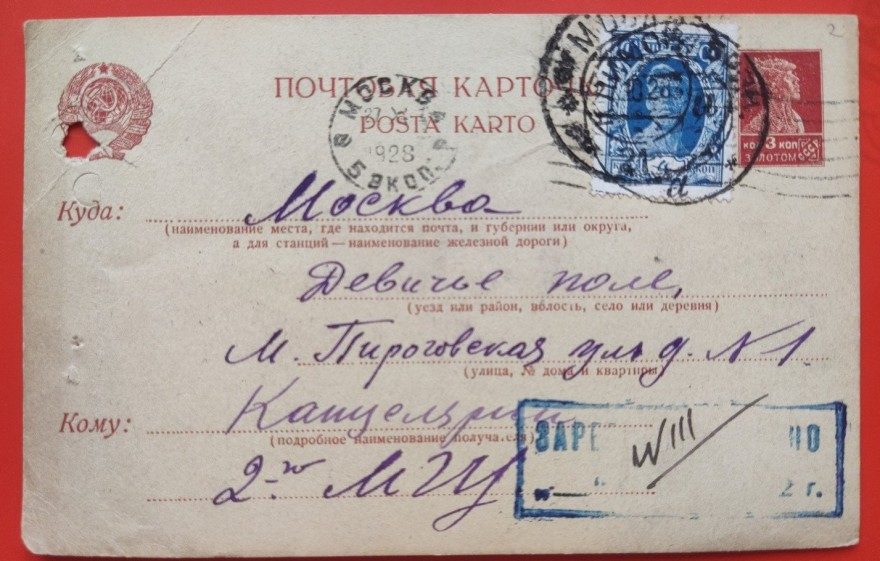 2
ПОЧТОВАЯ КАРТОЧКА
POSTA KARTO
3 КОП
ЗОЛОТОМ
МОСКВА
1928
5 ЭКСП.
Куда: Москва
(наименование места, где находится почта, и губернии или округа,
а для станций—наименование железной дороги)
Девичье поле,
(уезд или район, волость, село или деревня)
М. Пироговская ул д. N 1.
(улица, № дома и квартиры)
Кому: Канцелярии
(подробное наименование получателя)
2-го МГУ
VIII
2 г.